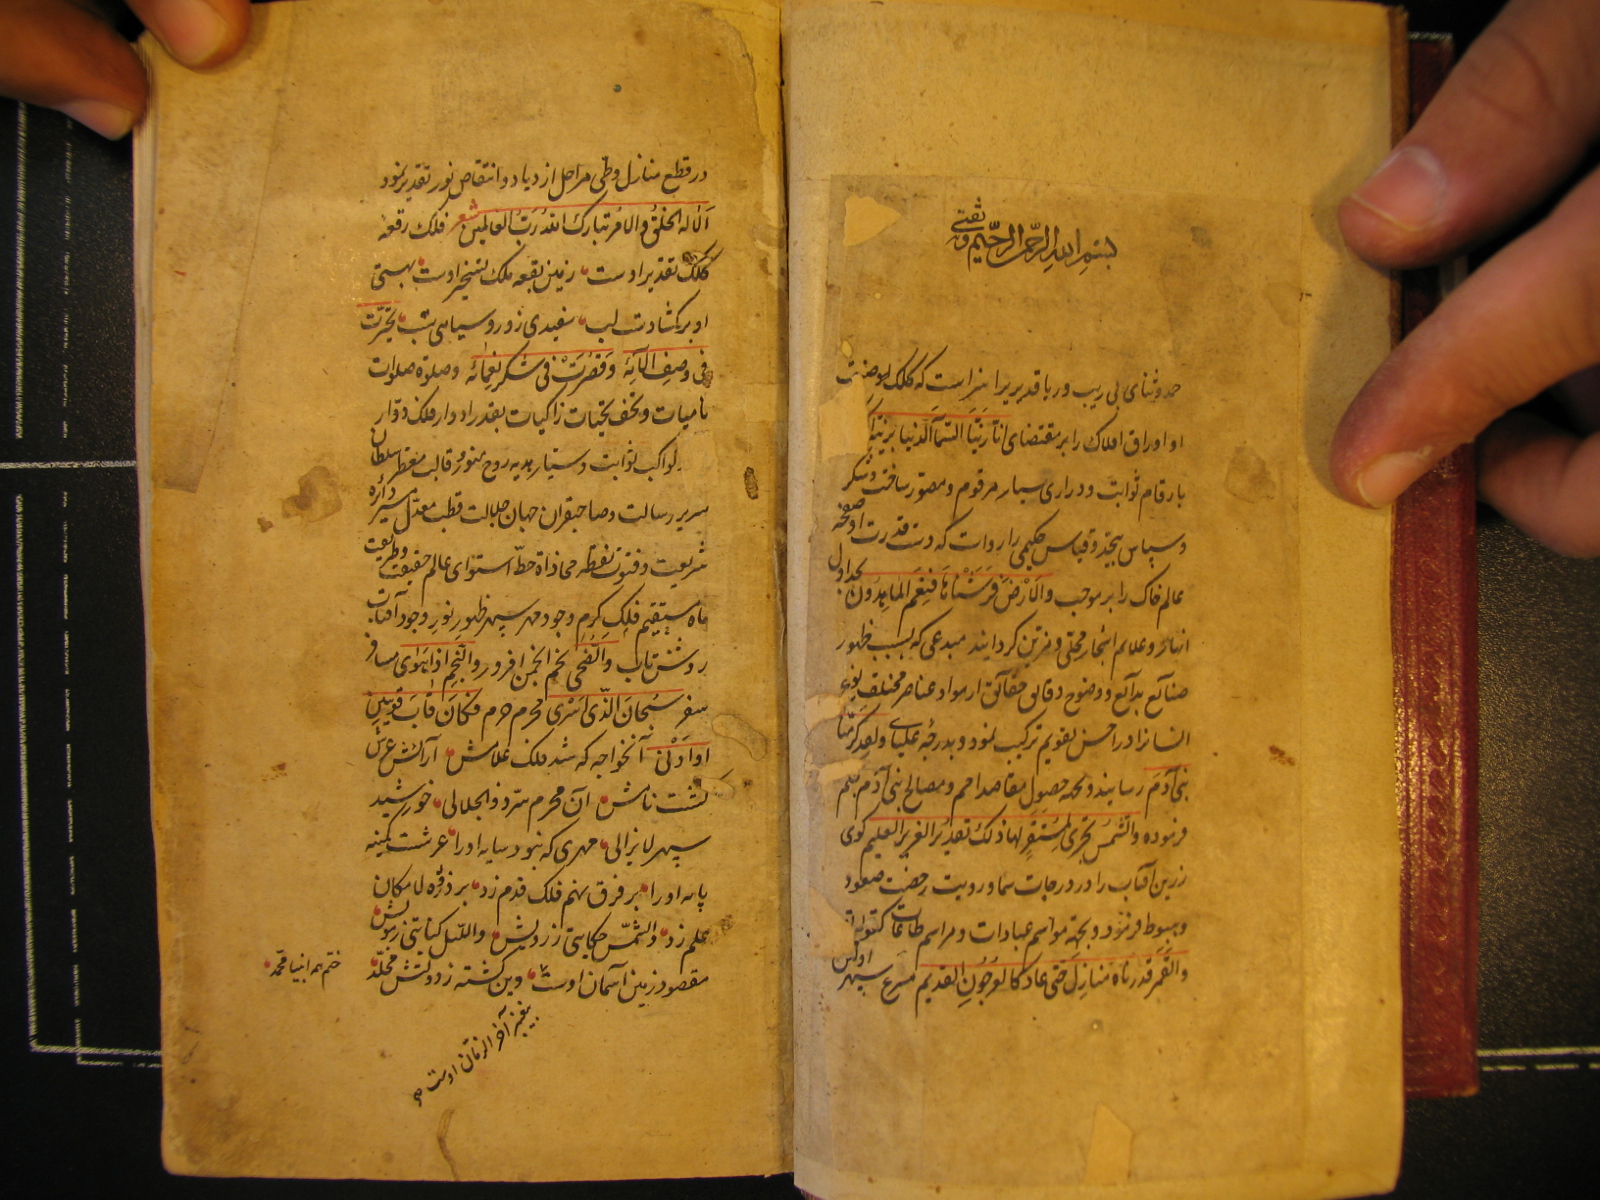 بسم الله الرحمن الرحیم وبه ثقتی
حمد و ثنای بی ریب و ریا قدیریرا سزاست که کلک
او اوراق افلاک را بر مقتضای انا زینا السماء الدنیا بزینة
بارقام ثوابت و دراری سیار مرقوم و مصور ساخت و شکر
و سپاس بیحد و قیاس حکیمی را رواست که دست قدرت او صفحه
عالم خاک را بر موجب والارض فرشناها فنعم الماهدون بجداول
انهار و علایم اشجار محلی و مزین کردانید مبدعی که بسبب ظهور
صنایع بدایع و وضوح دقایق حقایق از مواد عناصر مختلف نوع
انسانرا در احسن تقویم ترکیب نمود و بدرجه علیای ولقد کرمنا
بنی آدم رسانید و بجهة حصول مقاصد امم و مصالح بنی آدم
فرموده والشمس تجری لمستقر لها ذلک تقدیر العزیز العلیم کوی
زرین آفتاب را در درجات سماوویت رخصت صعود
و هبوط فرمود و بجهة مواسم عبادات و مراسم طاعات
والقمر قدرناه منازل حتی عاد کالعرجون القدیم مسرع سپهر
در قطع منازل و طی مراحل ازدیاد و انتقاص نور تقدیر نمود
الا له الخلق والامر تبارک الله رب العالمین شعر فلک رقعه
کلک تقدیر اوست زمین بقعه ملک تسخیر اوست بهستی
او بر کشادست لب سفیدی روز و سیاهی شب تحیرت
فی وصف آلائه وقصرت فی شکر نعمائه وصلوة صلوات
نامیات و تحف تحیات زاکیات بقدر ادوار فلک دوار
کواکب ثوابت و سیار هدیه روح منور و قالب معطر سلطان
سریر رسالت و صاحبقران جهان جلالت قطب معدل مسیر دائره
شریعت و فتوت نقطه محاذاة خط استوای عالم حقیقت و طریقت
ماه مستقیم فلک کرم وجود مهر سپهر ظهور نور وجود آفتاب
روشن تاب والضحی نجم انجمن افروز والنجم اذا هوی مسافر
سفر سبحان الذی اسری محرم حرم فکان قاب قوسین
او ادنی آنخواجه که شد فلک غلامش آرایش عرش
کشت نامش آن محرم سر ذوالجلالی خورشید
سپهر لایزالی مهری که نبود سایه اورا عرشست کمینه
پایه اورا بر فرق نهم فلک قدم زد بر ذروه لا مکان
علم زد والشمس حکایتی ز رویش واللیل کنایتی ز مویش
مقصود زمین آسمان اوست وین کشته ز دولتش مخلد
ختم همه انبیا محمد
پیغمبر آخر الزمان اوست